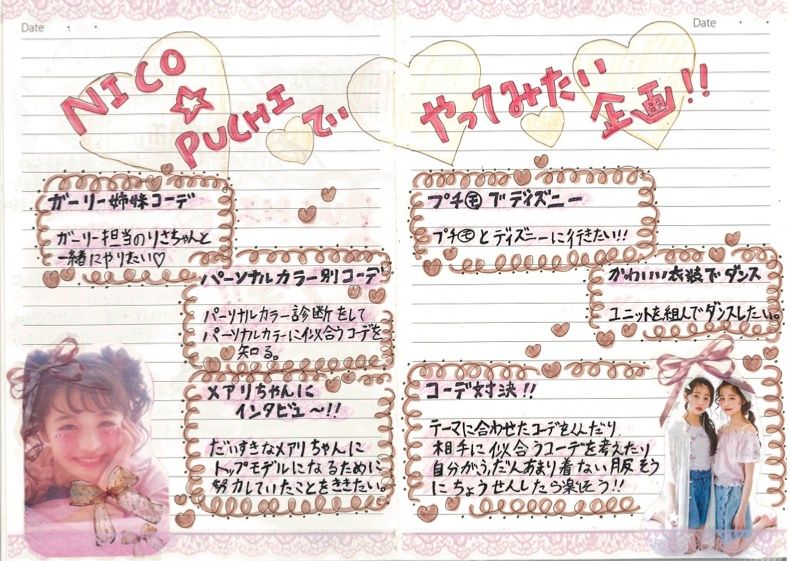 Date
Date
NICO☆PUCHIで
やってみたい企画!!
ガーリー姉妹コーデ
ガーリー担当のりさちゃんと
一緒にやりたい♡
パーソナルカラー別コーデ
パーソナルカラー診断をして
パーソナルカラーに似合うコーデを
知る。
メアリちゃんに
インタビュ〜!!
だいすきなメアリちゃんに
トップモデルになるために
努力していたことをききたい。
プチ㋲でディズニー
プチ㋲とディズニーに行きたい!!
かわいい衣装でダンス
ユニットを組んでダンスしたい。
コーデ対決!!
テーマに合わせたコーデをくんだり
相手に似合うコーデを考えたり
自分がふだんあまり着ない服
にちょうせんしたら楽しそう!!